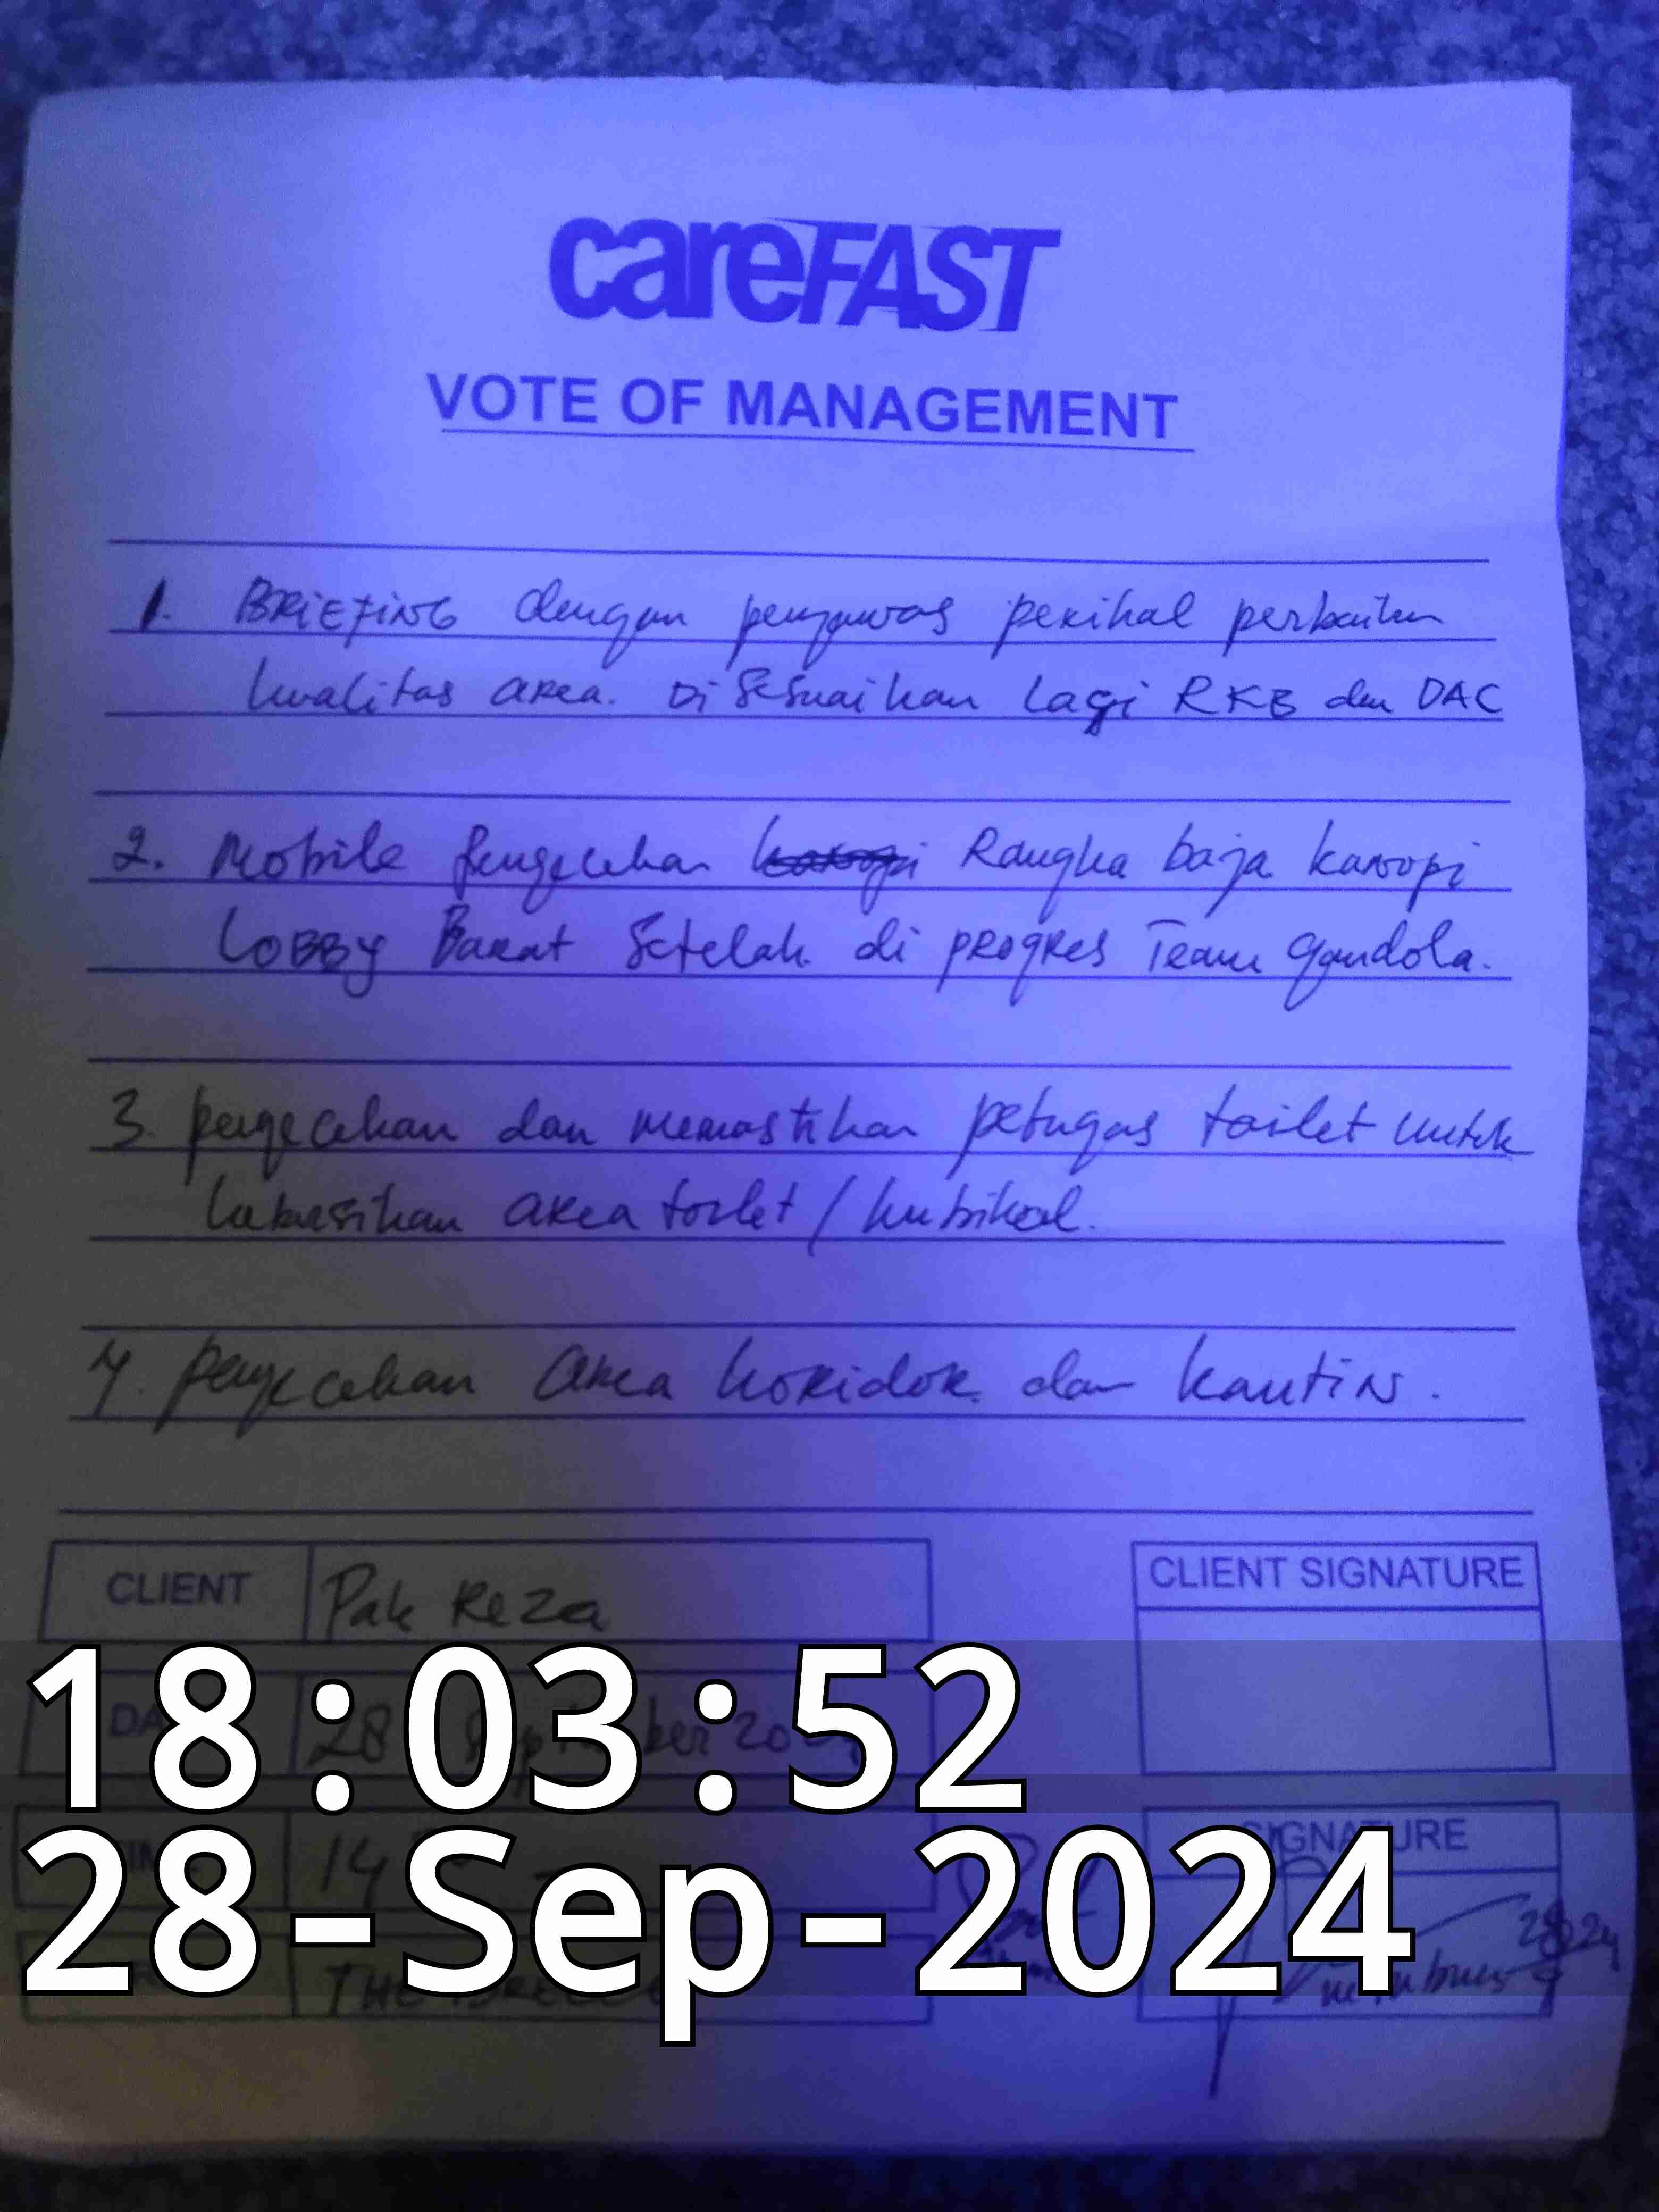 careFAST
VOTE OF MANAGEMENT
1. BRIEFING dengan pengawas perihal perbaikan
kwalitas area. Di Sesuaikan lagi RKB dan DAC
2. Mobile pengecekan Rangka baja kanopi
LOBBY Barat Setelah di progres Team gondola.
3. pengecekan dan memastikan petugas toilet untuk
area toilet / kubikal.
4. pengecekan area koridor dan kantin.
CLIENT Pak Reza
CLIENT SIGNATURE
18:03:52
28 September 20
SIGNATURE
14
28-Sep-2024
THE BREEZE